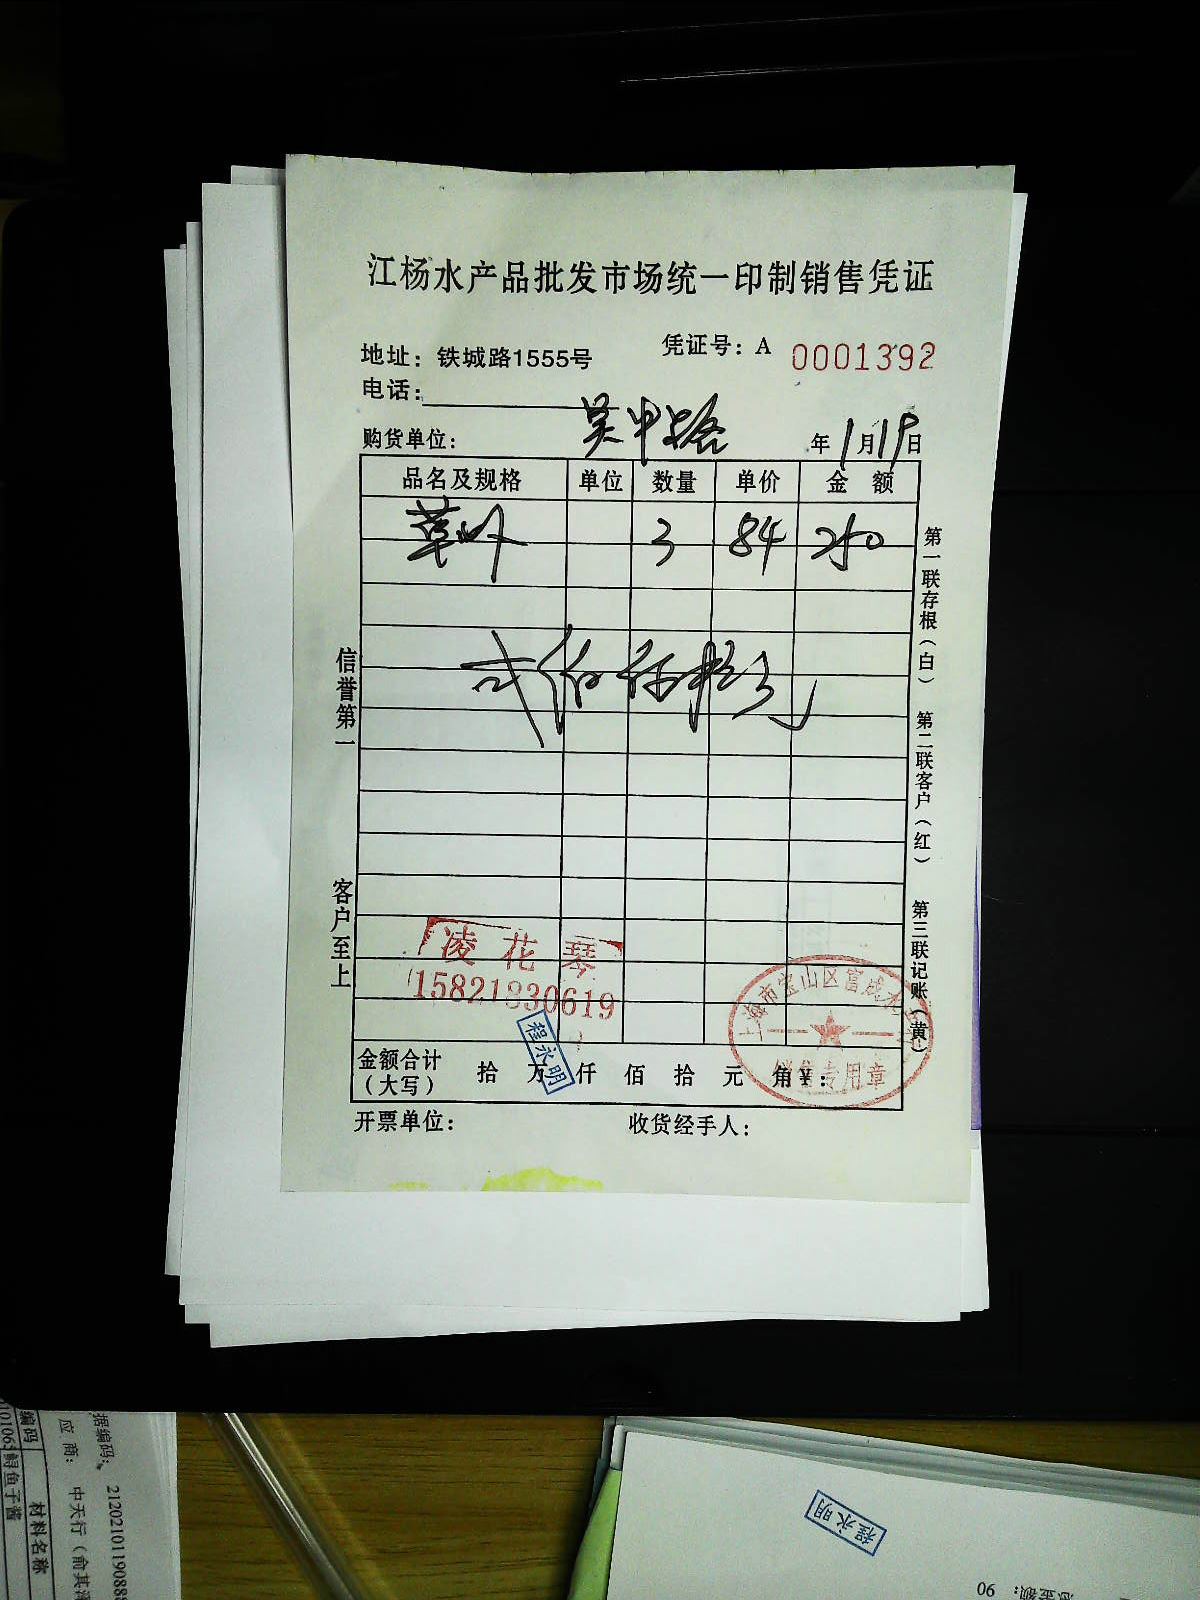 江杨水产品批发市场统一印制销售凭证
地址：铁城路1555号
凭证号：A 0001392
电话：
购货单位： 吴中路 年1月19日
品名及规格 单位 数量 单价 金额
草虾 3 84 250
贰佰伍拾元
信誉第一
客户至上
第一联存根（白） 第二联客户（红） 第三联记账（黄）
凌花琴
15821830619
程永明
上海市宝山区富成水
销售专用章
金额合计（大写） 拾 万 仟 佰 拾 元 角 ¥：
开票单位： 收货经手人：
据编码： 2120210119088
应商： 中天行（俞其
编码 材料名称
鲟鱼子酱
程永明
总金额： 90